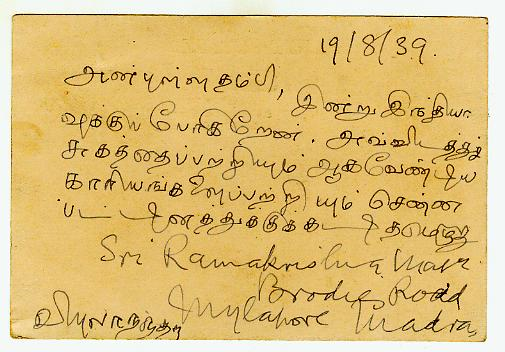 19/8/39.
அன்புள்ள தம்பி,
இன்று இந்தியா
வுக்குப் போகிறேன். அவ்விடத்துச்
சுகத்தைப்பற்றியும் ஆகவேண்டிய
காரியங்களைப்பற்றியும் சென்ன
பட்டினத்துக்கு
Sri Ramakrishna Math
Brodies Road
Mylapore Madras
விபுலாநந்தர்